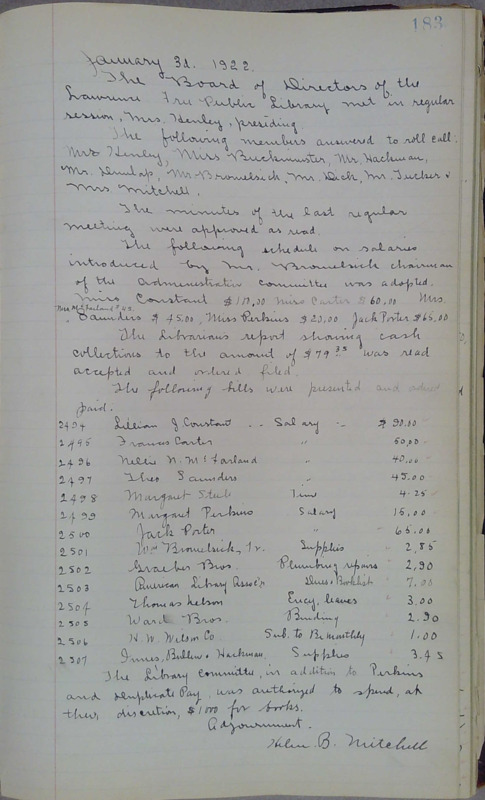 183
January 3d. 1922.
The Board of Directors of the
Lawrence Free Public Library met in regular
session, Mrs. Henley, presiding.
The following members answered to roll call:
Mrs Henley, Miss Buckminster, Mr. Hackman,
Mr. Dunlap, Mr Bromelsick, Mr. Dick, Mr. Tucker &
Mrs Mitchell.
The minutes of the last regular
meeting were approved as read.
The following schedule on salaries
introduced by Mr. Bromelsick chairman
of the administration committee was adopted.
Miss Constant Miss Carter $60.00 Mrs.
Mrs McFarland
Saunders $45.00, Miss Perkins $20.00 Jack Porter $65.00
The Librarians report showing cash
collections to the amount of $79.35 was read
accepted and ordered filed.
The following bills were presented and
paid.
2494 Lillian J. Constant .. Salary .. $90.00
2495 Frances Carter " 50.00
2496 Nellie N. McFarland " 40.00
2497 Theo Saunders " 45.00
2498 Margaret Time 4.25
2499 Margaret Perkins Salary 15.00
2500 Jack Porter " 65.00
2501 Wm Bromelsick, Tr. Supplies 2.85
2502 Graeber Bros. Plumbing repairs 2.90
2503 American Library Assoc'n Dues & Booklist 7.00
2504 Thomas Nelson Ency. leaves 3.00
2505 Ward Bros. Binding 2.90
2506 H. W. Wilson Co Sub. to Bi monthly 1.00
2507 Innes, Bullene & Hackman, Supplies 3.45
The Library Committee, in addition to Perkins
and Duplicate Pay, was authorized to spend, at
their discretion, $1000 for books.
Adjournment.
Helen B. Mitchell